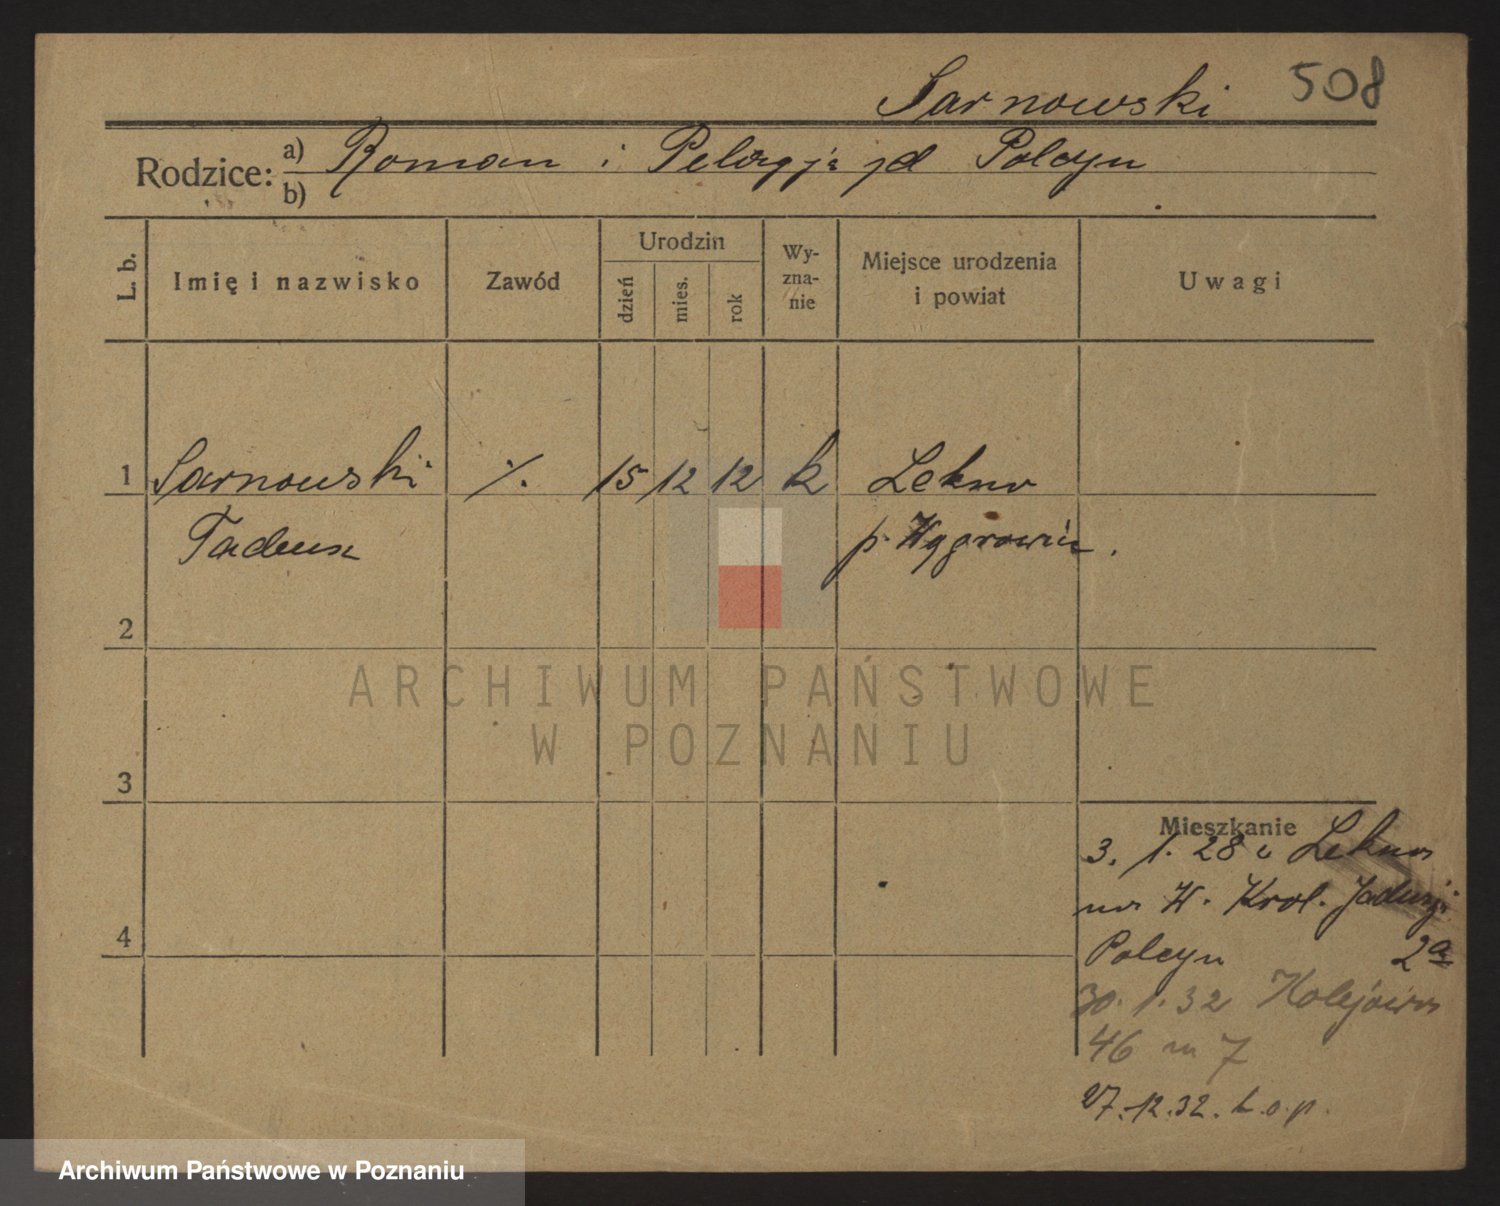 Sarnowski 508
Rodzice: a) Roman i Pelagja zd Polcyn
b)
L. b.
Imię i nazwisko
Zawód
Urodzin
dzień
mies.
rok
Wy-
zna-
nie
Miejsce urodzenia
i powiat
Uwagi
1 Sarnowski ./. 15 12 12 k Lekno
Tadeusz p. Wągrowiec.
2
ARCHIWUM PAŃSTWOWE
W POZNANIU
3
Mieszkanie
3. 1. 28 z Lekna
na W. Krol. Jadwigi
4
Polcyn 2a
30. 1. 32 Kolejowa
46 m 7
27.12.32. k.o.p.
Archiwum Państwowe w Poznaniu